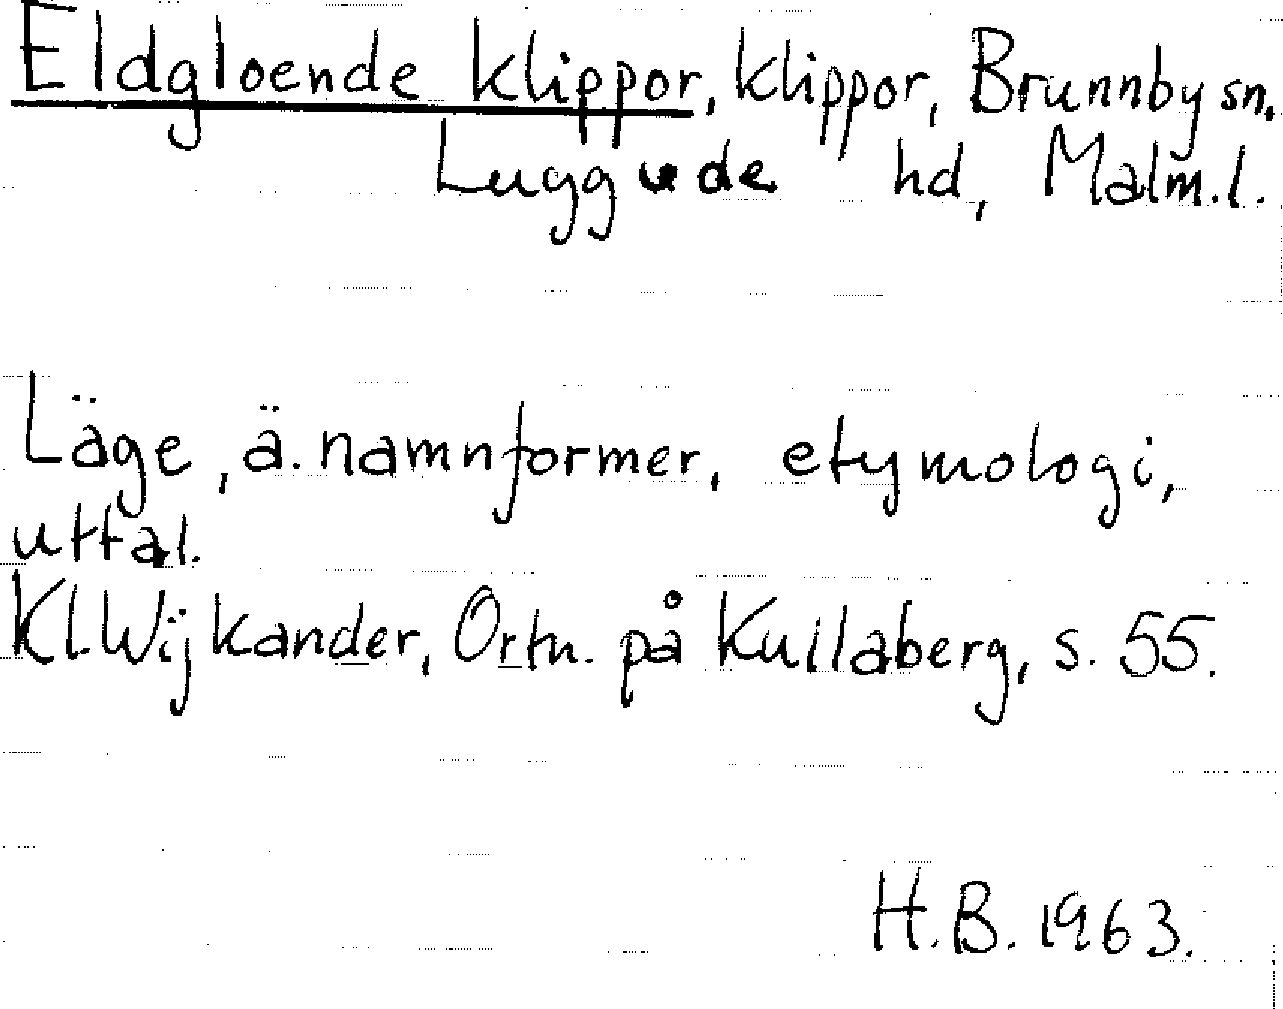 Eldgloende klippor, klippor, Brunnby sn.
Luggude hd, Malm.l.
Läge, ä. namnformer, etymologi,
uttal.
KLWijkander, Ortn. på Kullaberg, s. 55.
H.B. 1963.